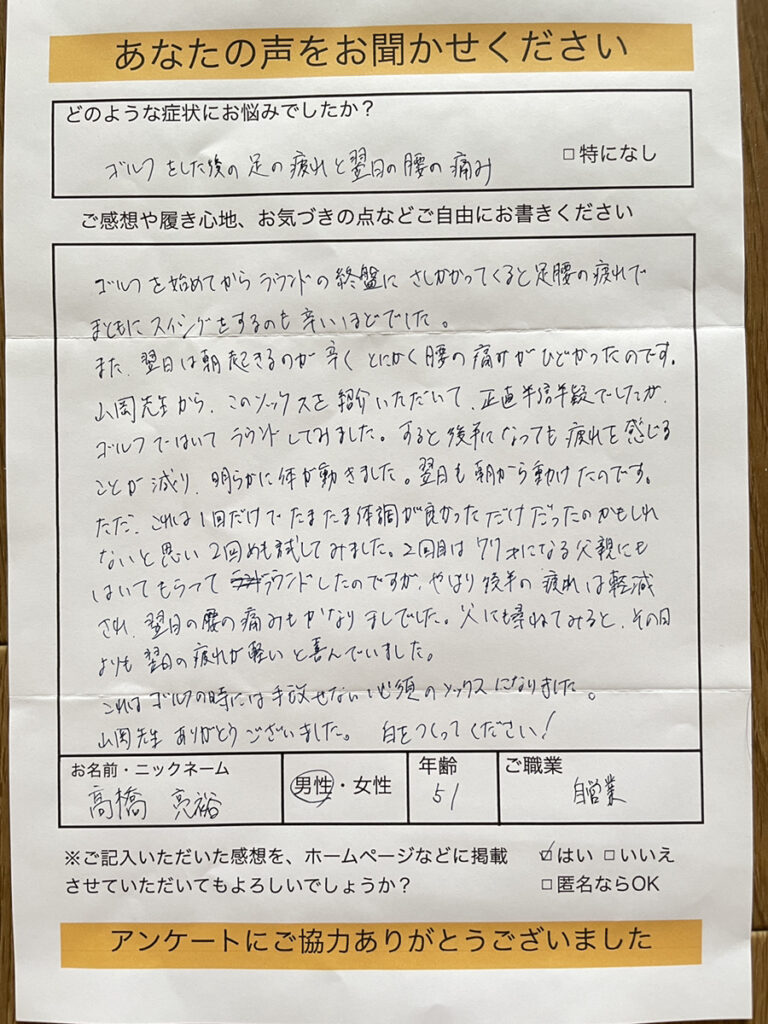 あなたの声をお聞かせください
どのような症状にお悩みでしたか？
ゴルフをした後の足の疲れと翌日の腰の痛み
□特になし
ご感想や履き心地、お気づきの点などご自由にお書きください
ゴルフを始めてからラウンドの終盤にさしかかってくると足腰の疲れで
まともにスイングをするのも辛いほどでした。
また、翌日は朝起きるのが辛くとにかく腰の痛みがひどかったのです。
山岡先生から、このソックスを紹介いただいて、正直半信半疑でしたが、
ゴルフではいてラウンドしてみました。すると後半になっても疲れを感じる
ことが減り、明らかに体が動きました。翌日も朝から動けたのです。
ただ、これは1回だけでたまたま体調が良かっただけだったのかもしれ
ないと思い2回めも試してみました。2回目は77才になる父親にも
はいてもらってラウンドしたのですが、やはり後半の疲れは軽減
され、翌日の腰の痛みもかなりましでした。父にも尋ねてみると、その日
よりも翌日の疲れが軽いと喜んでいました。
これはゴルフの時には手放せない必須のソックスになりました。
山岡先生ありがとうございました。 白をつくってください！
お名前・ニックネーム
高橋 亮裕
男性・女性
年齢
51
ご職業
自営業
※ご記入いただいた感想を、ホームページなどに掲載
させていただいてもよろしいでしょうか？
☑はい □いいえ
□匿名ならOK
アンケートにご協力ありがとうございました